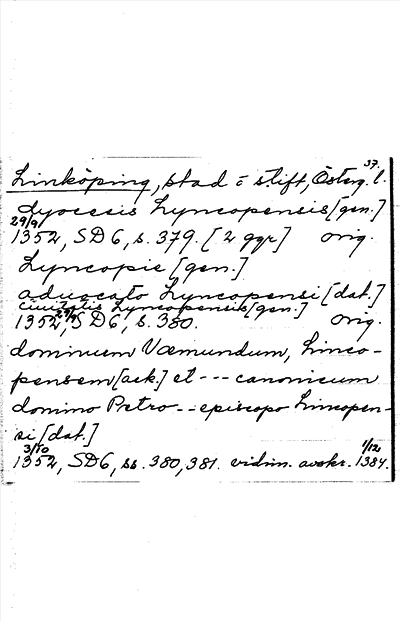 37.
Linköping, stad o stift, Österg. l.
dyocesis Lyncopensis [gen.]
29/9
1352, SD6, s. 379. [2 ggr] orig.
Lyncopie [gen.]
aduocato Lyncopensi [dat.]
ciuitatis Lyncopensis [gen.]
1352, 29/9 SD6, s. 380. orig.
dominum Væmundum, Linco-
pensem [ack.] et --- canonicum
domino Petro -- episcopo Lincopen-
si [dat.]
3/10 1/12
1352, SD6, ss. 380, 381. vidim. avskr. 1384.